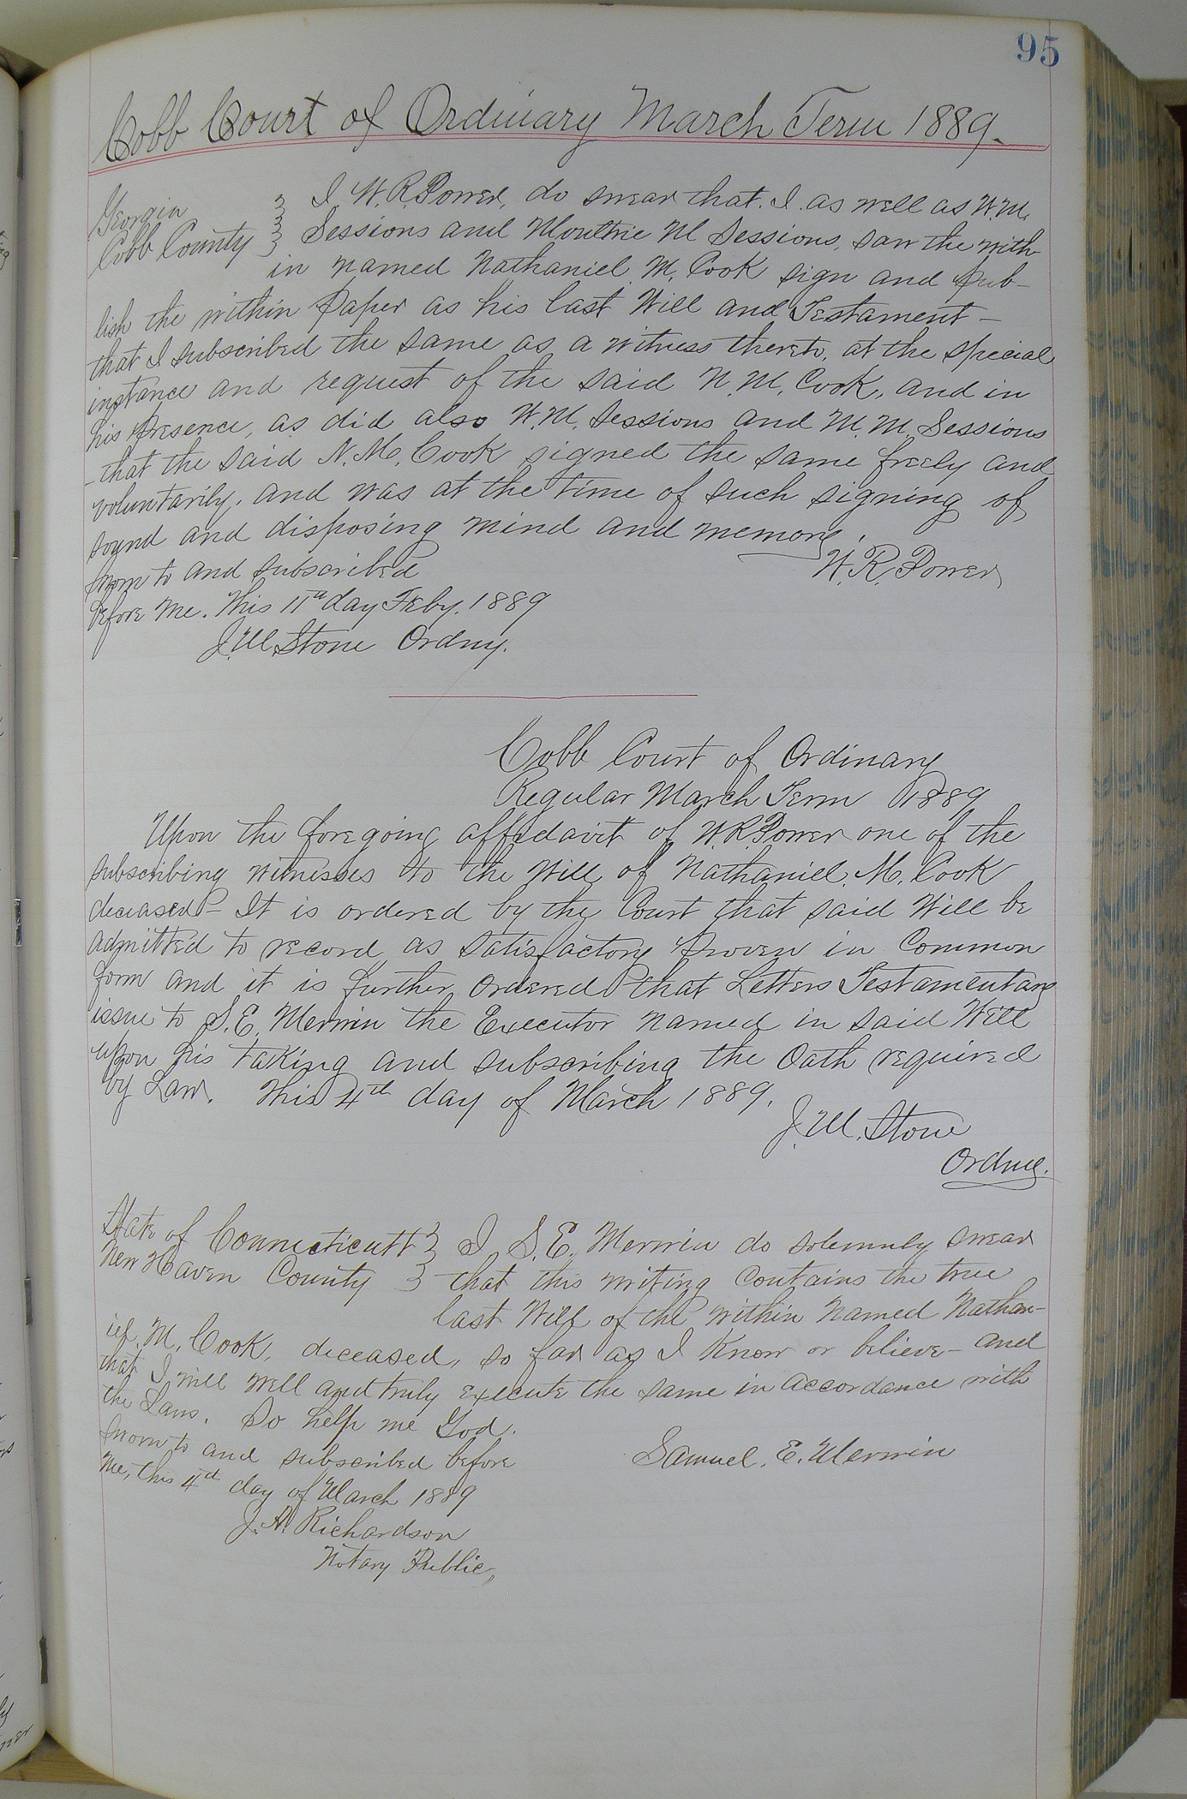 95
Cobb Court of Ordinary March Term 1889.
Georgia
Cobb County
I, W. R. Power, do swear that I as well as W. M.
Sessions and Moultrie M Sessions, saw the with-
in named Nathaniel M. Cook sign and pub-
lish the within Paper as his last Will and Testament—
that I subscribed the same as a witness thereto, at the special
instance and request of the said N. M. Cook, and in
his presence, as did also W. M. Sessions and M. M. Sessions
- that the said N. M. Cook signed the same freely and
voluntarily, and was at the time of such signing of
sound and disposing mind and memory.
W. R. Power
Sworn to and subscribed
before me. This 11th day Feby. 1889
J. M. Stone Ordny.
Cobb Court of Ordinary
Regular March Term 1889
Upon the foregoing affidavit of W. R. Power one of the
subscribing witnesses to the Will of Nathaniel. M. Cook
deceased - It is ordered by the Court that said Will be
admitted to record as satisfactory proven in Common
form and it is further ordered that Letters Testamentary
issue to S. E. Merwin the Executor named in said Will
upon his taking and subscribing the Oath required
by Law. This 4th day of March 1889.
J. M. Stone
Ordny.
State of Connecticutt
New Haven County
I S. E. Merwin do solemnly swear
that this writing contains the true
last Will of the within named Nathan-
iel. M. Cook, deceased, so far as I know or believe - and
that I will well and truly execute the same in accordance with
the Laws. So help me God.
Sworn to and subscribed before
me, this 4th day of March 1889
Samuel. E. Merwin
J. A. Richardson
Notary Public,